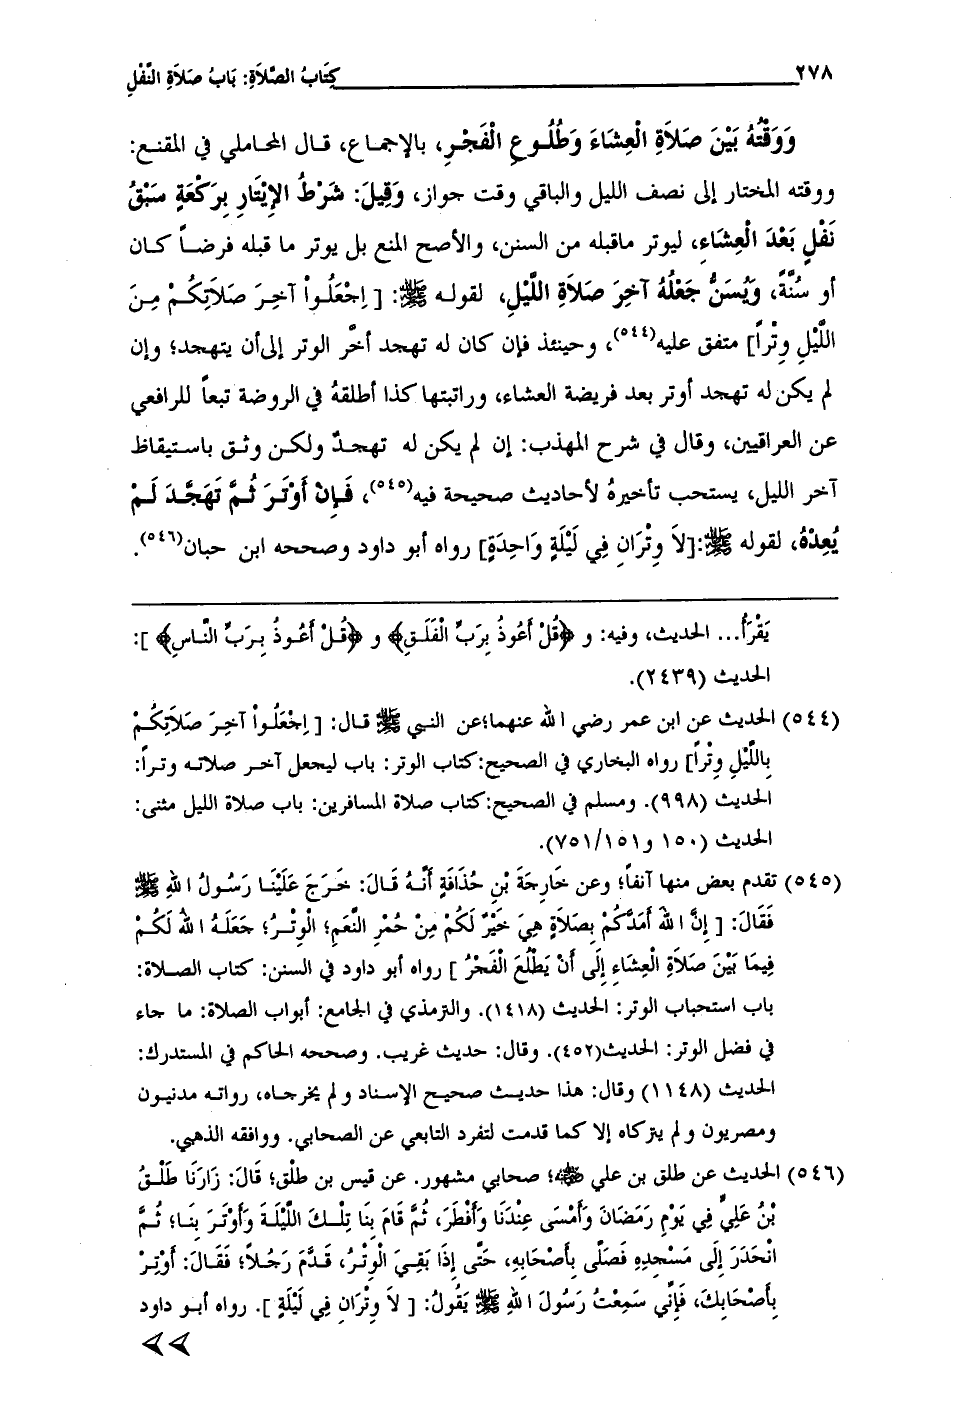 ٢٧٨ كِتَابُ الصَّلاَةِ: بَابُ صَلاَةِ النَّفْلِ
وَوَقْتُهُ بَيْنَ صَلاَةِ الْعِشَاءَ وَطُلُوعِ الْفَجْرِ، بالإجماع، قال المحاملي في المقنع:
ووقته المختار إلى نصف الليل والباقي وقت جواز، وَقِيلَ: شَرْطُ الإِيْتَارِ بِرَكْعَةٍ سَبْقُ
نَفْلٍ بَعْدَ الْعِشَاءِ، ليوتر ماقبله من السنن، والأصح المنع بل يوتر ما قبله فرضاً كان
أو سُنَّةً، وَيُسَنُّ جَعْلُهُ آخِرَ صَلاَةِ اللَّيْلِ، لقوله ﷺ: [ اِجْعَلُواْ آخِرَ صَلاَتِكُمْ مِنَ
اللَّيْلِ وِتْراً] متفق عليه(٥٤٤)، وحينئذ فإن كان له تهجد أخَّر الوتر إلى أن يتهجد؛ وإن
لم يكن له تهجد أوتر بعد فريضة العشاء، وراتبتها كذا أطلقهُ في الروضة تبعاً للرافعي
عن العراقيين، وقال في شرح المهذب: إن لم يكن له تهجدٌ ولكن وثق باستيقاظ
آخر الليل، يستحب تأخيرهُ لأحاديث صحيحة فيه(٥٤٥)، فَإِنْ أَوْتَرَ ثُمَّ تَهَجَّدَ لَمْ
يُعِدْهُ، لقوله ﷺ:[لاَ وِتْرَانِ فِي لَيْلَةٍ وَاحِدَةٍ] رواه أبو داود وصححه ابن حبان(٥٤٦).
يَقْرَأُ... الحديث، وفيه: و ﴿قُلْ أَعُوذُ بِرَبِّ الْفَلَقِ﴾ و ﴿قُلْ أَعُوذُ بِرَبِّ النَّاسِ﴾ ]:
الحديث (٢٤٣٩).
(٥٤٤) الحديث عن ابن عمر رضي الله عنهما؛عن النبي ﷺ قال: [ اِجْعَلُواْ آخِرَ صَلاَتِكُمْ
بِاللَّيْلِ وِتْراً] رواه البخاري في الصحيح:كتاب الوتر: باب ليجعل آخر صلاته وتراً:
الحديث (٩٩٨). ومسلم في الصحيح:كتاب صلاة المسافرين: باب صلاة الليل مثنى:
الحديث (١٥٠ و١٥١/٧٥١).
(٥٤٥) تقدم بعض منها آنفاً؛ وعن خَارِجَةَ بْنِ حُذَافَةٍ أَنَّهُ قَالَ: خَرَجَ عَلَيْنَا رَسُولُ اللهِ ﷺ
فَقَالَ: [ إِنَّ اللهَ أَمَدَّكُمْ بِصَلاَةٍ هِيَ خَيْرٌ لَكُمْ مِنْ حُمْرِ النَّعَمِ؛ الْوِتْرُ؛ جَعَلَهُ اللهُ لَكُمْ
فِيمَا بَيْنَ صَلاَةِ الْعِشَاءِ إِلَى أَنْ يَطْلُعَ الْفَجْرُ ] رواه أبو داود في السنن: كتاب الصلاة:
باب استحباب الوتر: الحديث (١٤١٨). والترمذي في الجامع: أبواب الصلاة: ما جاء
في فضل الوتر: الحديث(٤٥٢). وقال: حديث غريب. وصححه الحاكم في المستدرك:
الحديث (١١٤٨) وقال: هذا حديث صحيح الإسناد ولم يخرجاه، رواته مدنيون
ومصريون ولم يتركاه إلا كما قدمت لتفرد التابعي عن الصحابي. ووافقه الذهبي.
(٥٤٦) الحديث عن طلق بن علي ﷺ؛ صحابي مشهور. عن قيس بن طلق؛ قَالَ: زَارَنَا طَلْقُ
بْنُ عَلِيٍّ فِي يَوْمِ رَمَضَانَ وَأَمْسَى عِنْدَنَا وَأَفْطَرَ، ثُمَّ قَامَ بِنَا تِلْكَ اللَّيْلَةَ وَأَوْتَرَ بِنَا؛ ثُمَّ
انْحَدَرَ إِلَى مَسْجِدِهِ فَصَلَّى بِأَصْحَابِهِ، حَتَّى إِذَا بَقِيَ الْوِتْرُ، قَدَّمَ رَجُلاً؛ فَقَالَ: أَوْتِرْ
بِأَصْحَابِكَ، فَإِنِّي سَمِعْتُ رَسُولَ اللهِ ﷺ يَقُولُ: [ لاَ وِتْرَانِ فِي لَيْلَةٍ ]. رواه أبو داود